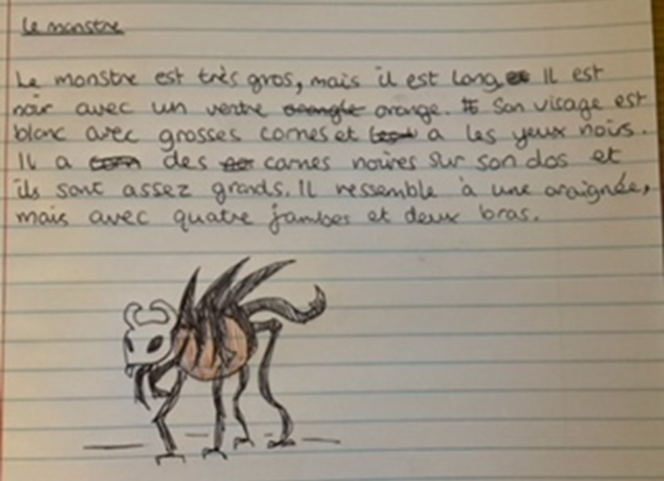 Le monstre
Le monstre est très gros, mais il est long. Il est
noir avec un ventre orange. Son visage est
blanc avec grosses cornes et a les yeux noirs.
Il a des cornes noires sur son dos et
ils sont assez grands. Il ressemble à une araignée,
mais avec quatre jambes et deux bras.